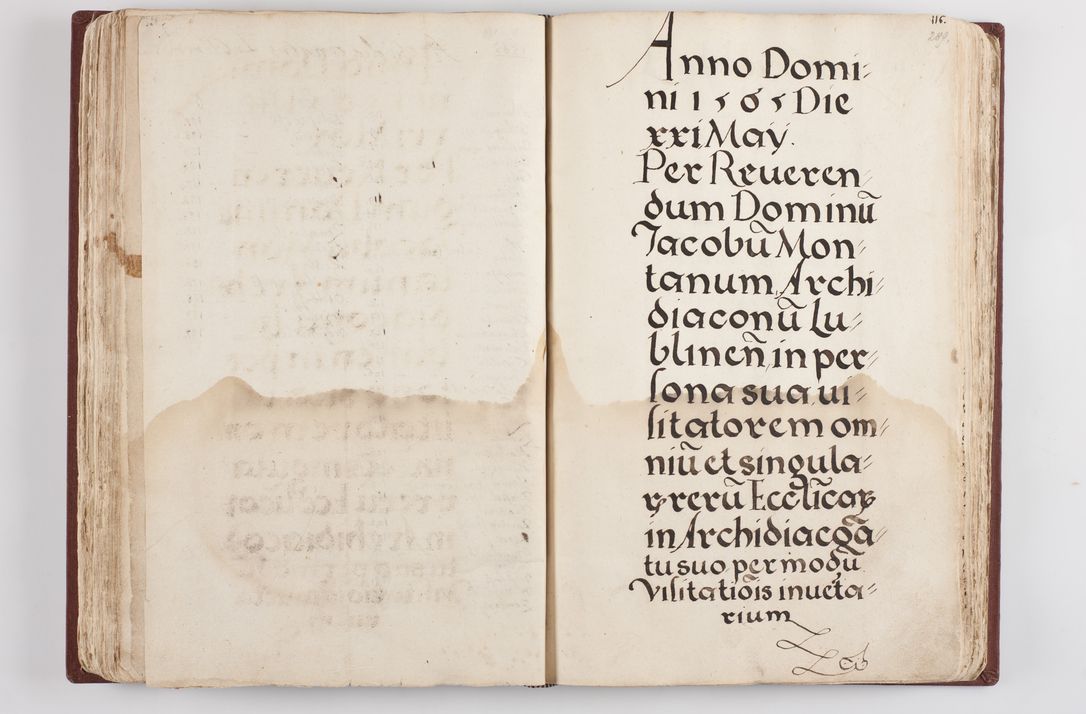 116.
289.
Anno Domi⸗
ni 1565 Die
xxi May.
Per Reueren⸗
dum Dominū
Jacobū Mon⸗
tanum Archi⸗
diaconū Lu⸗
blineñ, in per⸗
sona sua ui⸗
sitatorem om⸗
niū et singula⸗
rꝝ rerū Eccl̄icaꝝ
in Archidiacoa̅
tu suo per modū
Visitatio̅is inueta⸗
rium